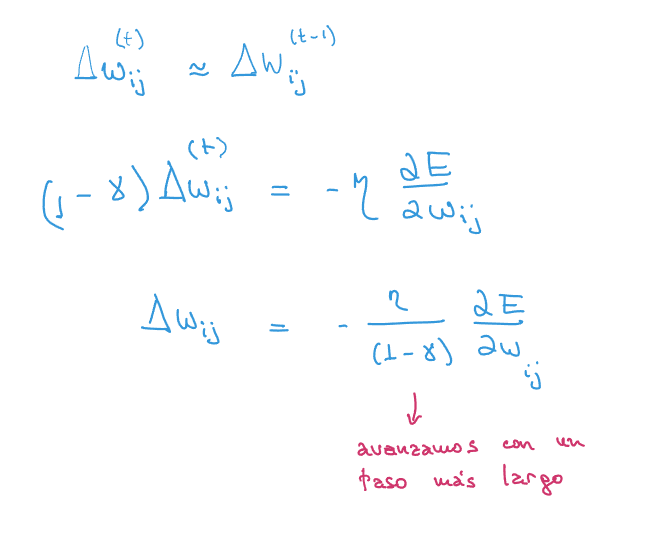 Δw_ij^(t) ≈ Δw_ij^(t-1)
(1-γ) Δw_ij^(t) = -η ∂E/∂w_ij
Δw_ij = - η/(1-γ) ∂E/∂w_ij
↓
avanzamos con un
paso más largo